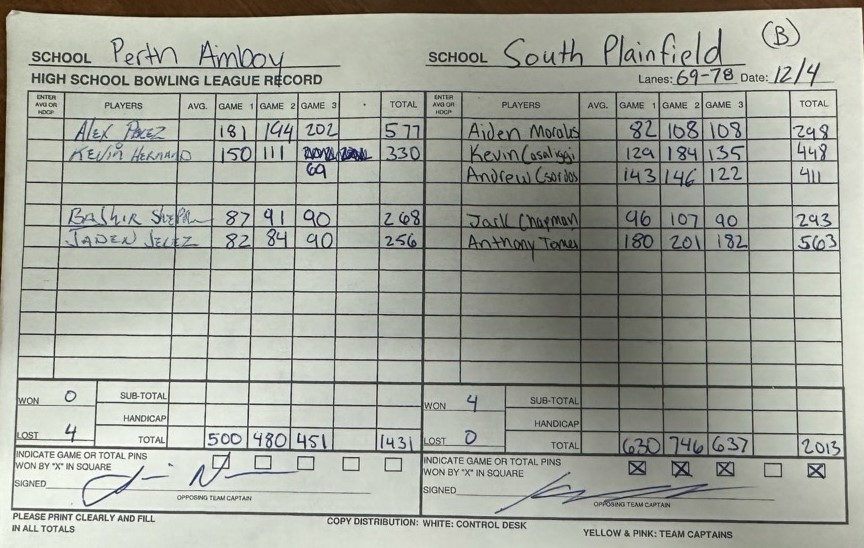 (B)
SCHOOL Perth Amboy
SCHOOL South Plainfield
HIGH SCHOOL BOWLING LEAGUE RECORD
Lanes: 69-78 Date: 12/4
ENTER AVG OR HDCP PLAYERS AVG. GAME 1 GAME 2 GAME 3 TOTAL
ENTER AVG OR HDCP PLAYERS AVG. GAME 1 GAME 2 GAME 3 TOTAL
ALEX PEREZ 181 194 202 577
KEVIN HERNAND 150 111 69 330
BASHIR 87 91 90 268
JADEN JELEZ 82 84 90 256
Aiden Morales 82 108 108 298
Kevin 129 184 135 448
Andrew Csordos 143 146 122 411
Jack Chapman 96 107 90 293
Anthony Torres 180 201 182 563
WON 0 SUB-TOTAL
HANDICAP
LOST 4 TOTAL 500 480 451 1431
WON 4 SUB-TOTAL
HANDICAP
LOST 0 TOTAL 630 746 637 2013
INDICATE GAME OR TOTAL PINS
WON BY "X" IN SQUARE
SIGNED
OPPOSING TEAM CAPTAIN
INDICATE GAME OR TOTAL PINS
WON BY "X" IN SQUARE X X X X
SIGNED
OPPOSING TEAM CAPTAIN
PLEASE PRINT CLEARLY AND FILL
IN ALL TOTALS
COPY DISTRIBUTION: WHITE: CONTROL DESK
YELLOW & PINK: TEAM CAPTAINS